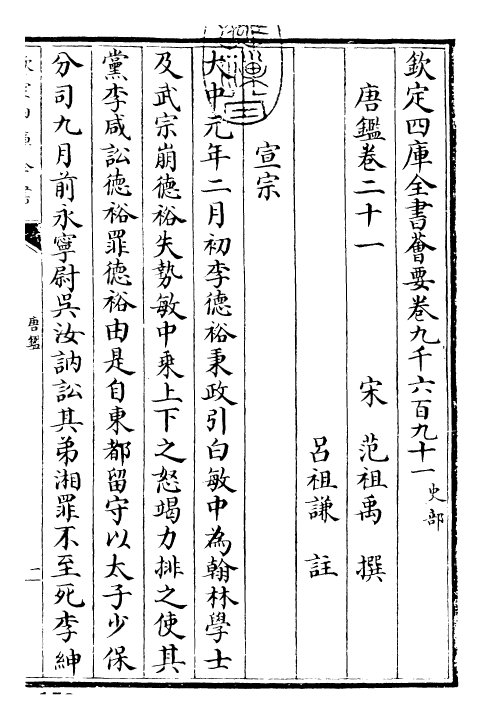 欽定四庫全書薈要卷九千六百九十一 史部
唐鑑卷二十一
宋 范祖禹 撰
呂祖謙 註
宣宗
大中元年二月初李德裕秉政引白敏中為翰林學士
及武宗崩德裕失勢敏中乘上下之怒竭力排之使其
黨李咸訟德裕罪德裕由是自東都留守以太子少保
分司九月前永寧尉吳汝訥訟其弟湘罪不至死李紳
唐鑑